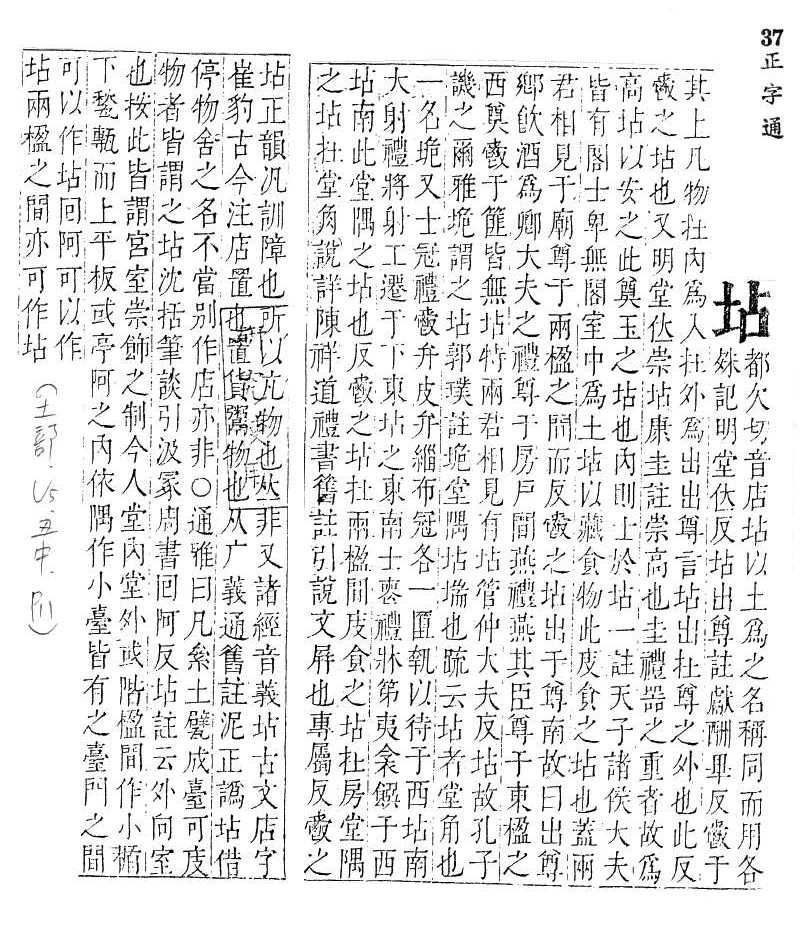 37正字通
坫
都欠切音店坫以土爲之名稱同而用各
殊記明堂位反坫出尊註獻酬畢反爵于
其上凡物在內爲入在外爲出出尊言坫出在尊之外也此反
爵之坫也又明堂位崇坫康圭註崇高也圭禮器之重者故爲
高坫以安之此奠玉之坫也內則士於坫一註天子諸侯大夫
皆有閣士卑無閣室中爲土坫以藏食物此庋食之坫也蓋兩
君相見于廟尊于兩楹之間而反爵之坫出于尊南故曰出尊
鄉飮酒爲卿大夫之禮尊于房戶間燕禮燕其臣尊于東楹之
西奠爵于篚皆無坫特兩君相見有坫管仲大夫反坫故孔子
譏之爾雅垝謂之坫郭璞註垝堂隅坫端也疏云坫者堂角也
一名垝又士冠禮爵弁皮弁緇布冠各一匴執以待于西坫南
大射禮將射工遷于下東坫之東南士喪禮牀第夷衾饌于西
坫南此堂隅之坫也反爵之坫在兩楹間庋食之坫在房堂隅
之坫在堂角說詳陳祥道禮書舊註引說文屛也專屬反爵之
坫正韻汎訓障也所以亢物也𠀤非又諸經音義坫古文店字
崔豹古今注店置也置貨鬻物也从广義通舊註泥正譌坫借
停物舍之名不當别作店亦非○通雅曰凡絫土甓成臺可庋
物者皆謂之坫沈括筆談引汲冢周書回阿反坫註云外向室
也按此皆謂宮室崇飾之制今人堂內堂外或階楹間作小楯
下甃甎而上平板或亭阿之內依隅作小臺皆有之臺門之間
可以作坫回阿可以作
坫兩楹之間亦可作坫
(土部,丑中,